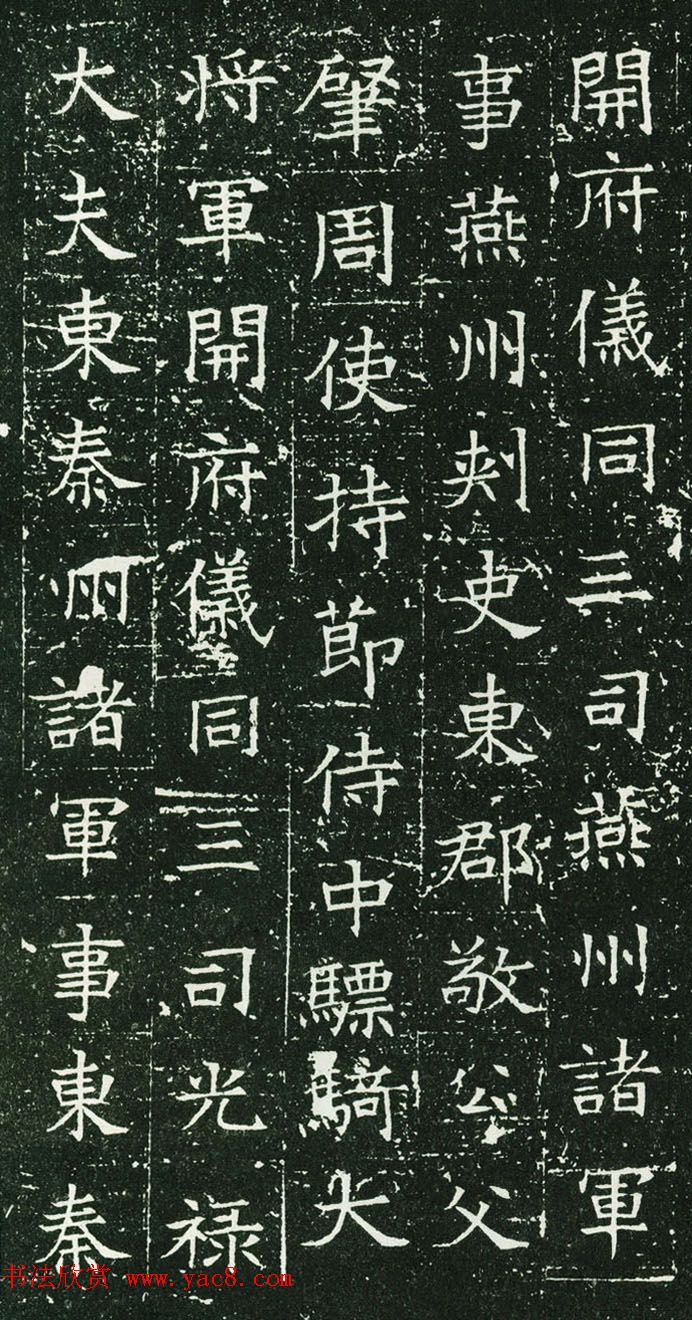 開府儀同三司燕州諸軍
事燕州刾史東郡敬公父
肇周使持節侍中驃騎大
将軍開府儀同三司光禄
大夫東秦州諸軍事東秦
书法欣赏 www.yac8.com